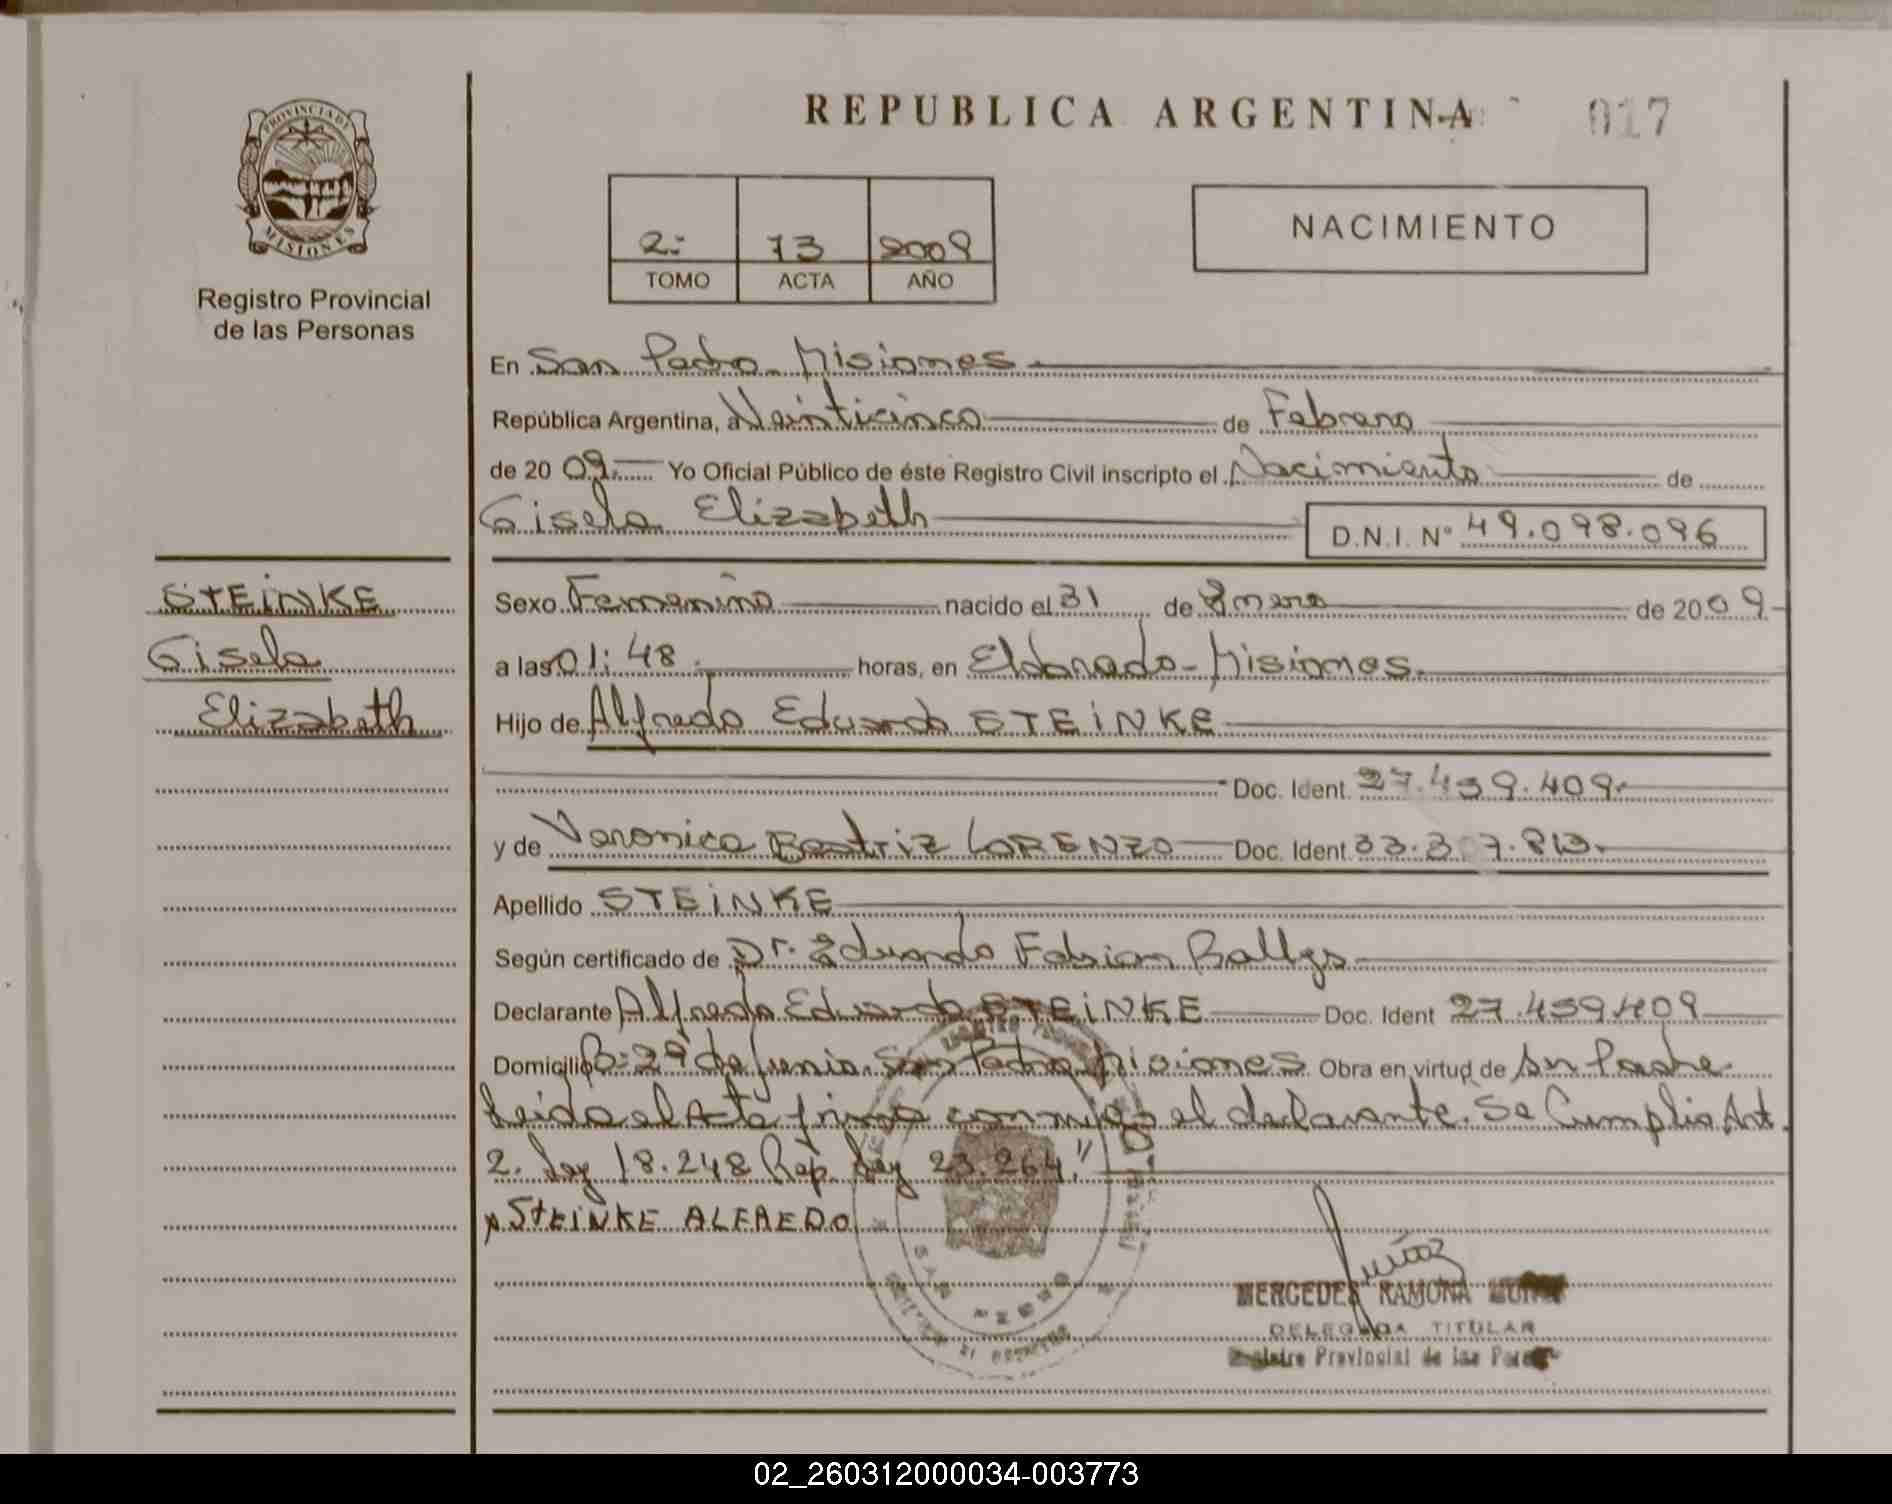 REPUBLICA ARGENTINA
017
PROVINCIA DE
MISIONES
Registro Provincial
de las Personas
2- 73 2009
TOMO ACTA AÑO
NACIMIENTO
En San Pedro Misiones
República Argentina, a Veinticinco de Febrero
de 20 09. Yo Oficial Público de éste Registro Civil inscripto el Nacimiento de
Gisela Elizabeth
D.N.I. Nº 49.098.096
STEiNKE
Gisela
Elizabeth
Sexo Femenino nacido el 31 de Enero de 2009
a las 01:48 horas, en Eldorado-Misiones.
Hijo de Alfredo Eduardo STEiNKE
Doc. Ident. 27.459.409.
y de Veronica Beatriz LORENZO Doc. Ident. 33.307.813.
Apellido STEiNKE
Según certificado de Dr. Eduardo Fabian
Declarante Alfredo Eduardo STEiNKE Doc. Ident 27.459.409
Domicilio Bº 29 de Junio. San Pedro Misiones Obra en virtud de su Padre
Leida el Acta firma conmigo el declarante. Se Cumplio Art.
2. Ley 18.248 Rep. Ley 23.264."
STEiNKE ALFREDO
SAN PEDRO
MERCEDES RAMONA
DELEGADA TITULAR
Registro Provincial de las
02_260312000034-003773